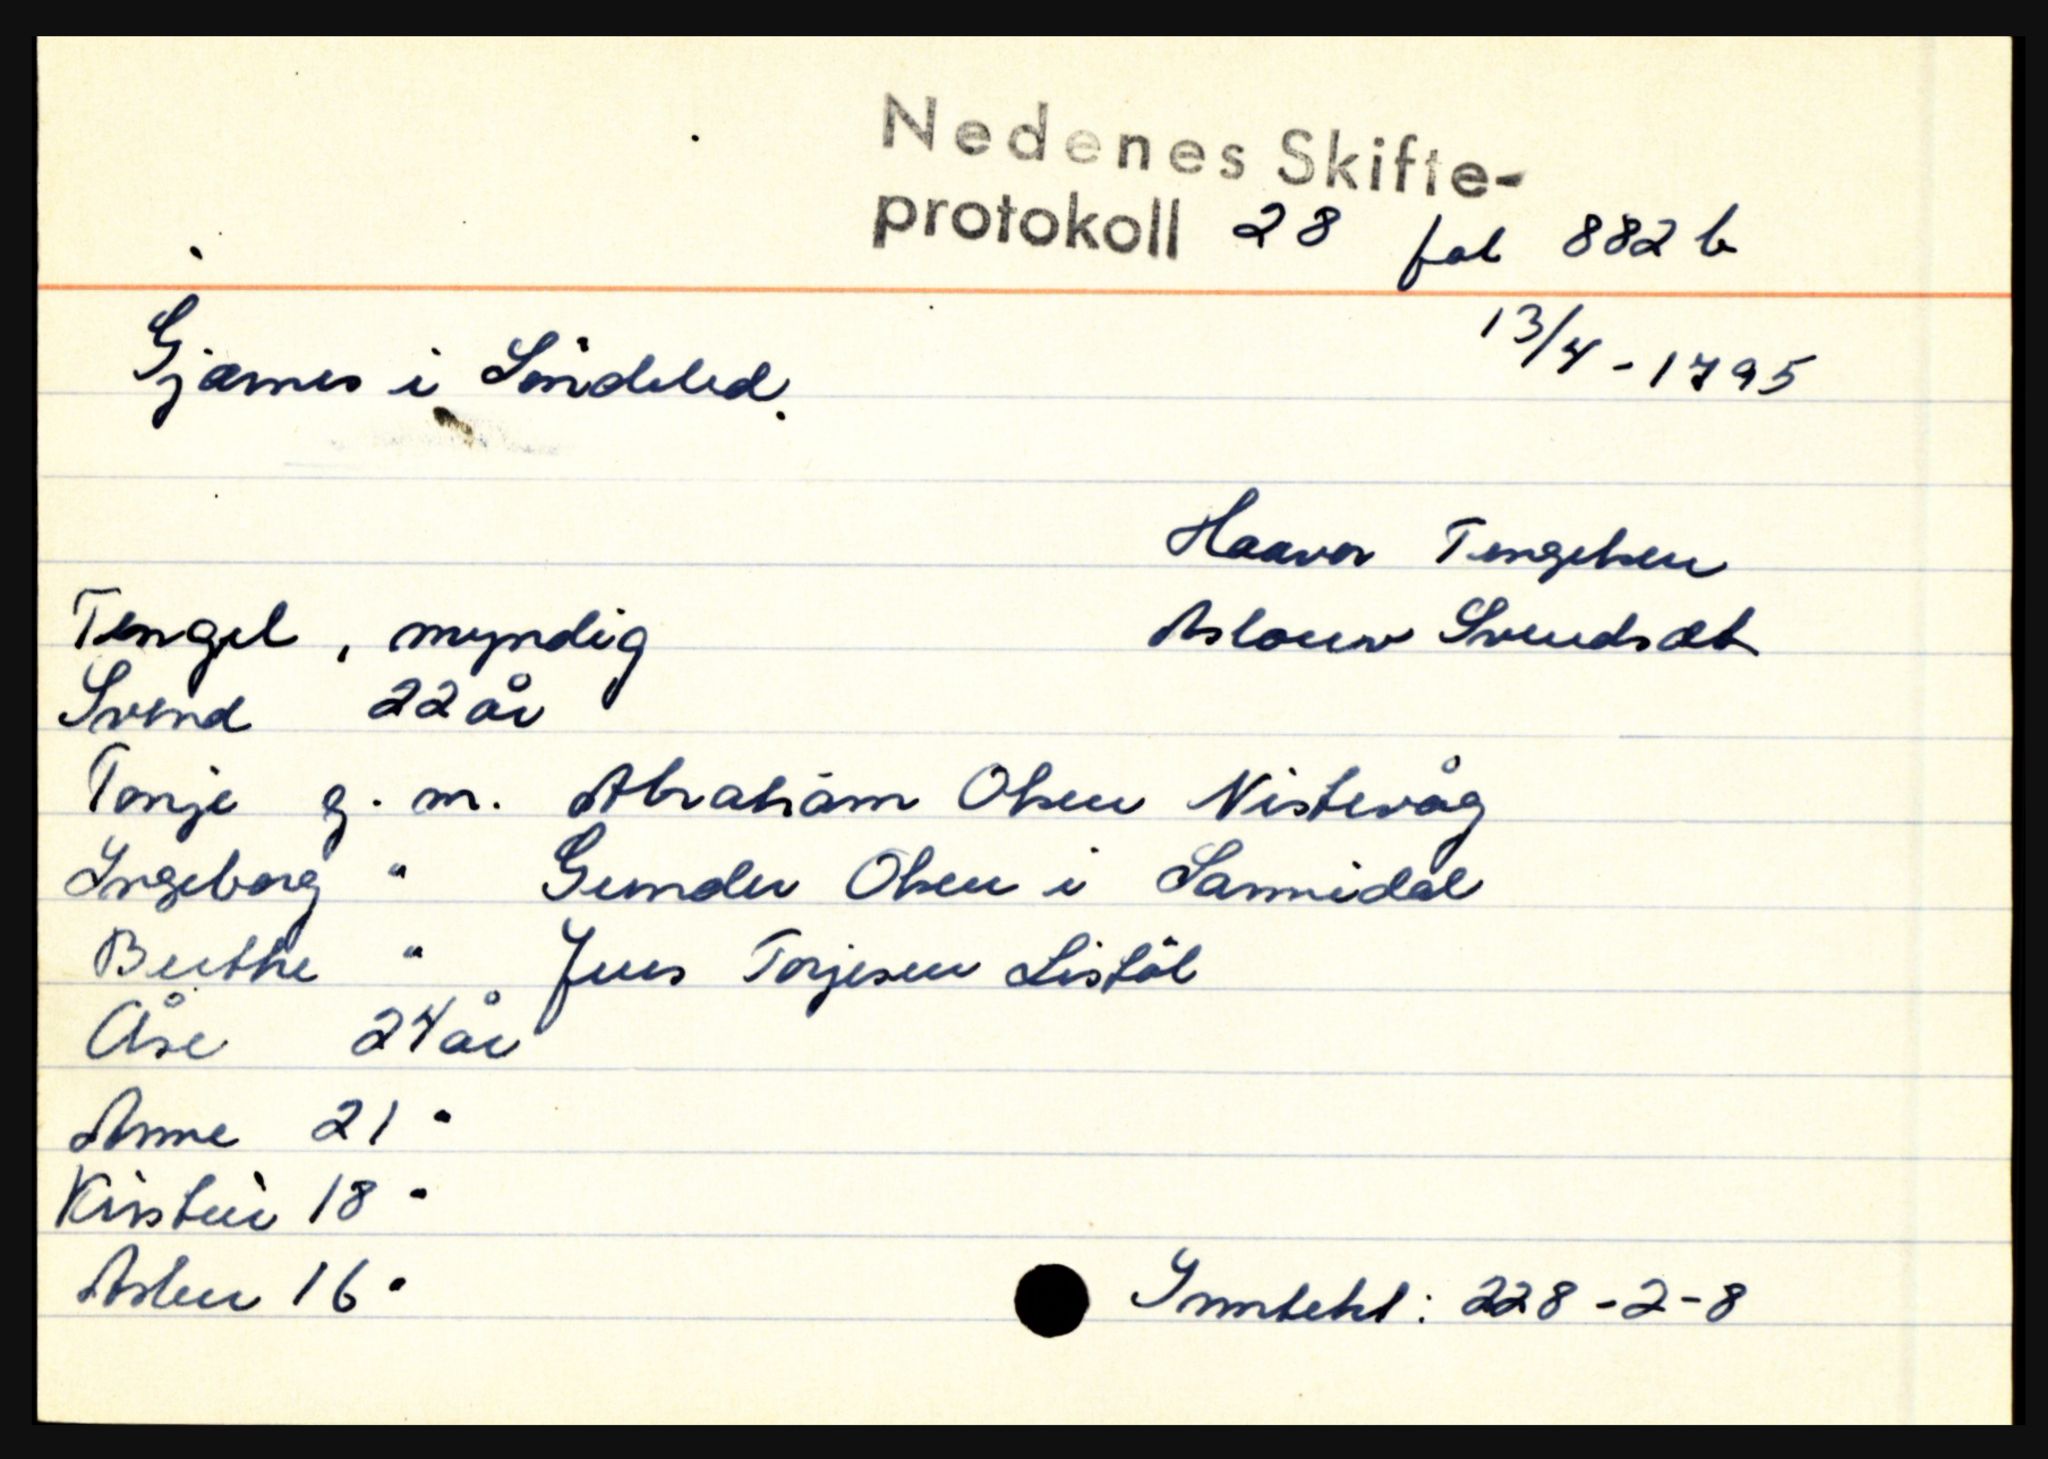 Nedenes Skifte-
protokoll 28 fol 882 b
13/4 - 1795
Gjærnes i Söndeled.
Haavor Tengelsen
Aslouw Svendsdt
Tengel, myndig
Svend 22 år
Tonje g. m. Abraham Olsen Nistevåg
Ingeborg " Gunder Olsen i Sannidal
Berthe " Jens Torjesen Listöl
Åse 24 år
Anne 21 "
Kirstin 18 "
Aslou 16 "
Inntekt: 228-2-8